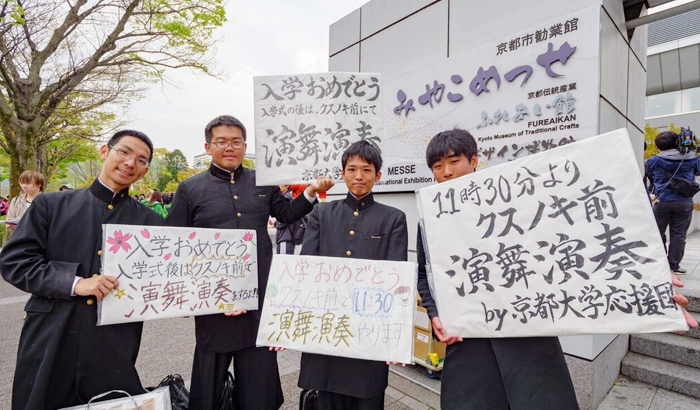 京都市勧業館
みやこめっせ
京都伝統産業
ふれあい館
FUREAIKAN
Kyoto Museum of Traditional Crafts
MESSE
International Exhibition
入学おめでとう
入学式の後は、クスノキ前にて
演舞演奏
入学おめでとう
入学式後はクスノキ前で
演舞演奏をするよ!!
入学おめでとう
クスノキ前で11:30
演舞演奏やります
11時30分より
クスノキ前
演舞演奏
by京都大学応援団